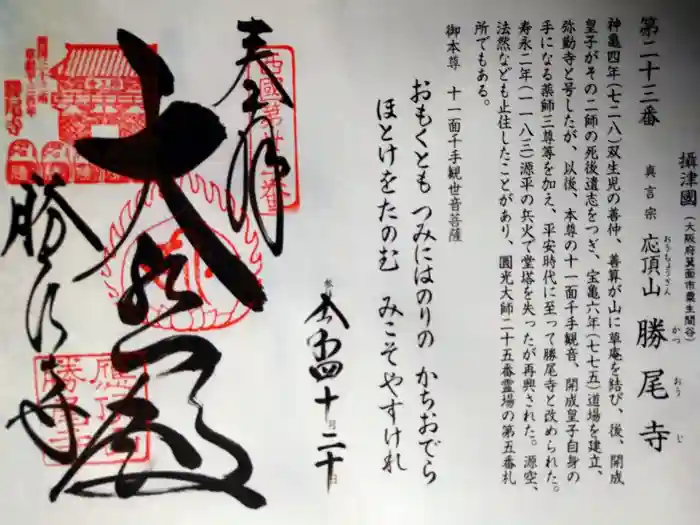 第二十三番
攝津國(大阪府箕面市粟生間谷)
真言宗 応頂山 勝尾寺
おうちょうざん かつおうじ
神亀四年(七二八)双生児の善仲、善算が山に草庵を結び、後、開成
皇子がその二師の死後遺志をつぎ、宝亀六年(七七五)道場を建立、
弥勒寺と号したが、以後、本尊の十一面千手観音、開成皇子自身の
手になる薬師三尊等を加え、平安時代に至って勝尾寺と改められた。
寿永二年(一一八三)源平の兵火で堂塔を失ったが再興された。源空、
法然なども止住したことがあり、圓光大師二十五番霊場の第五番札
所でもある。
御本尊 十一面千手観世音菩薩
おもくとも つみにはのりの かちおでら
ほとけをたのむ みこそやすけれ
奉拝
西國第廿三番
大悲殿
勝尾寺
應頂山
勝尾寺
四十 二十日